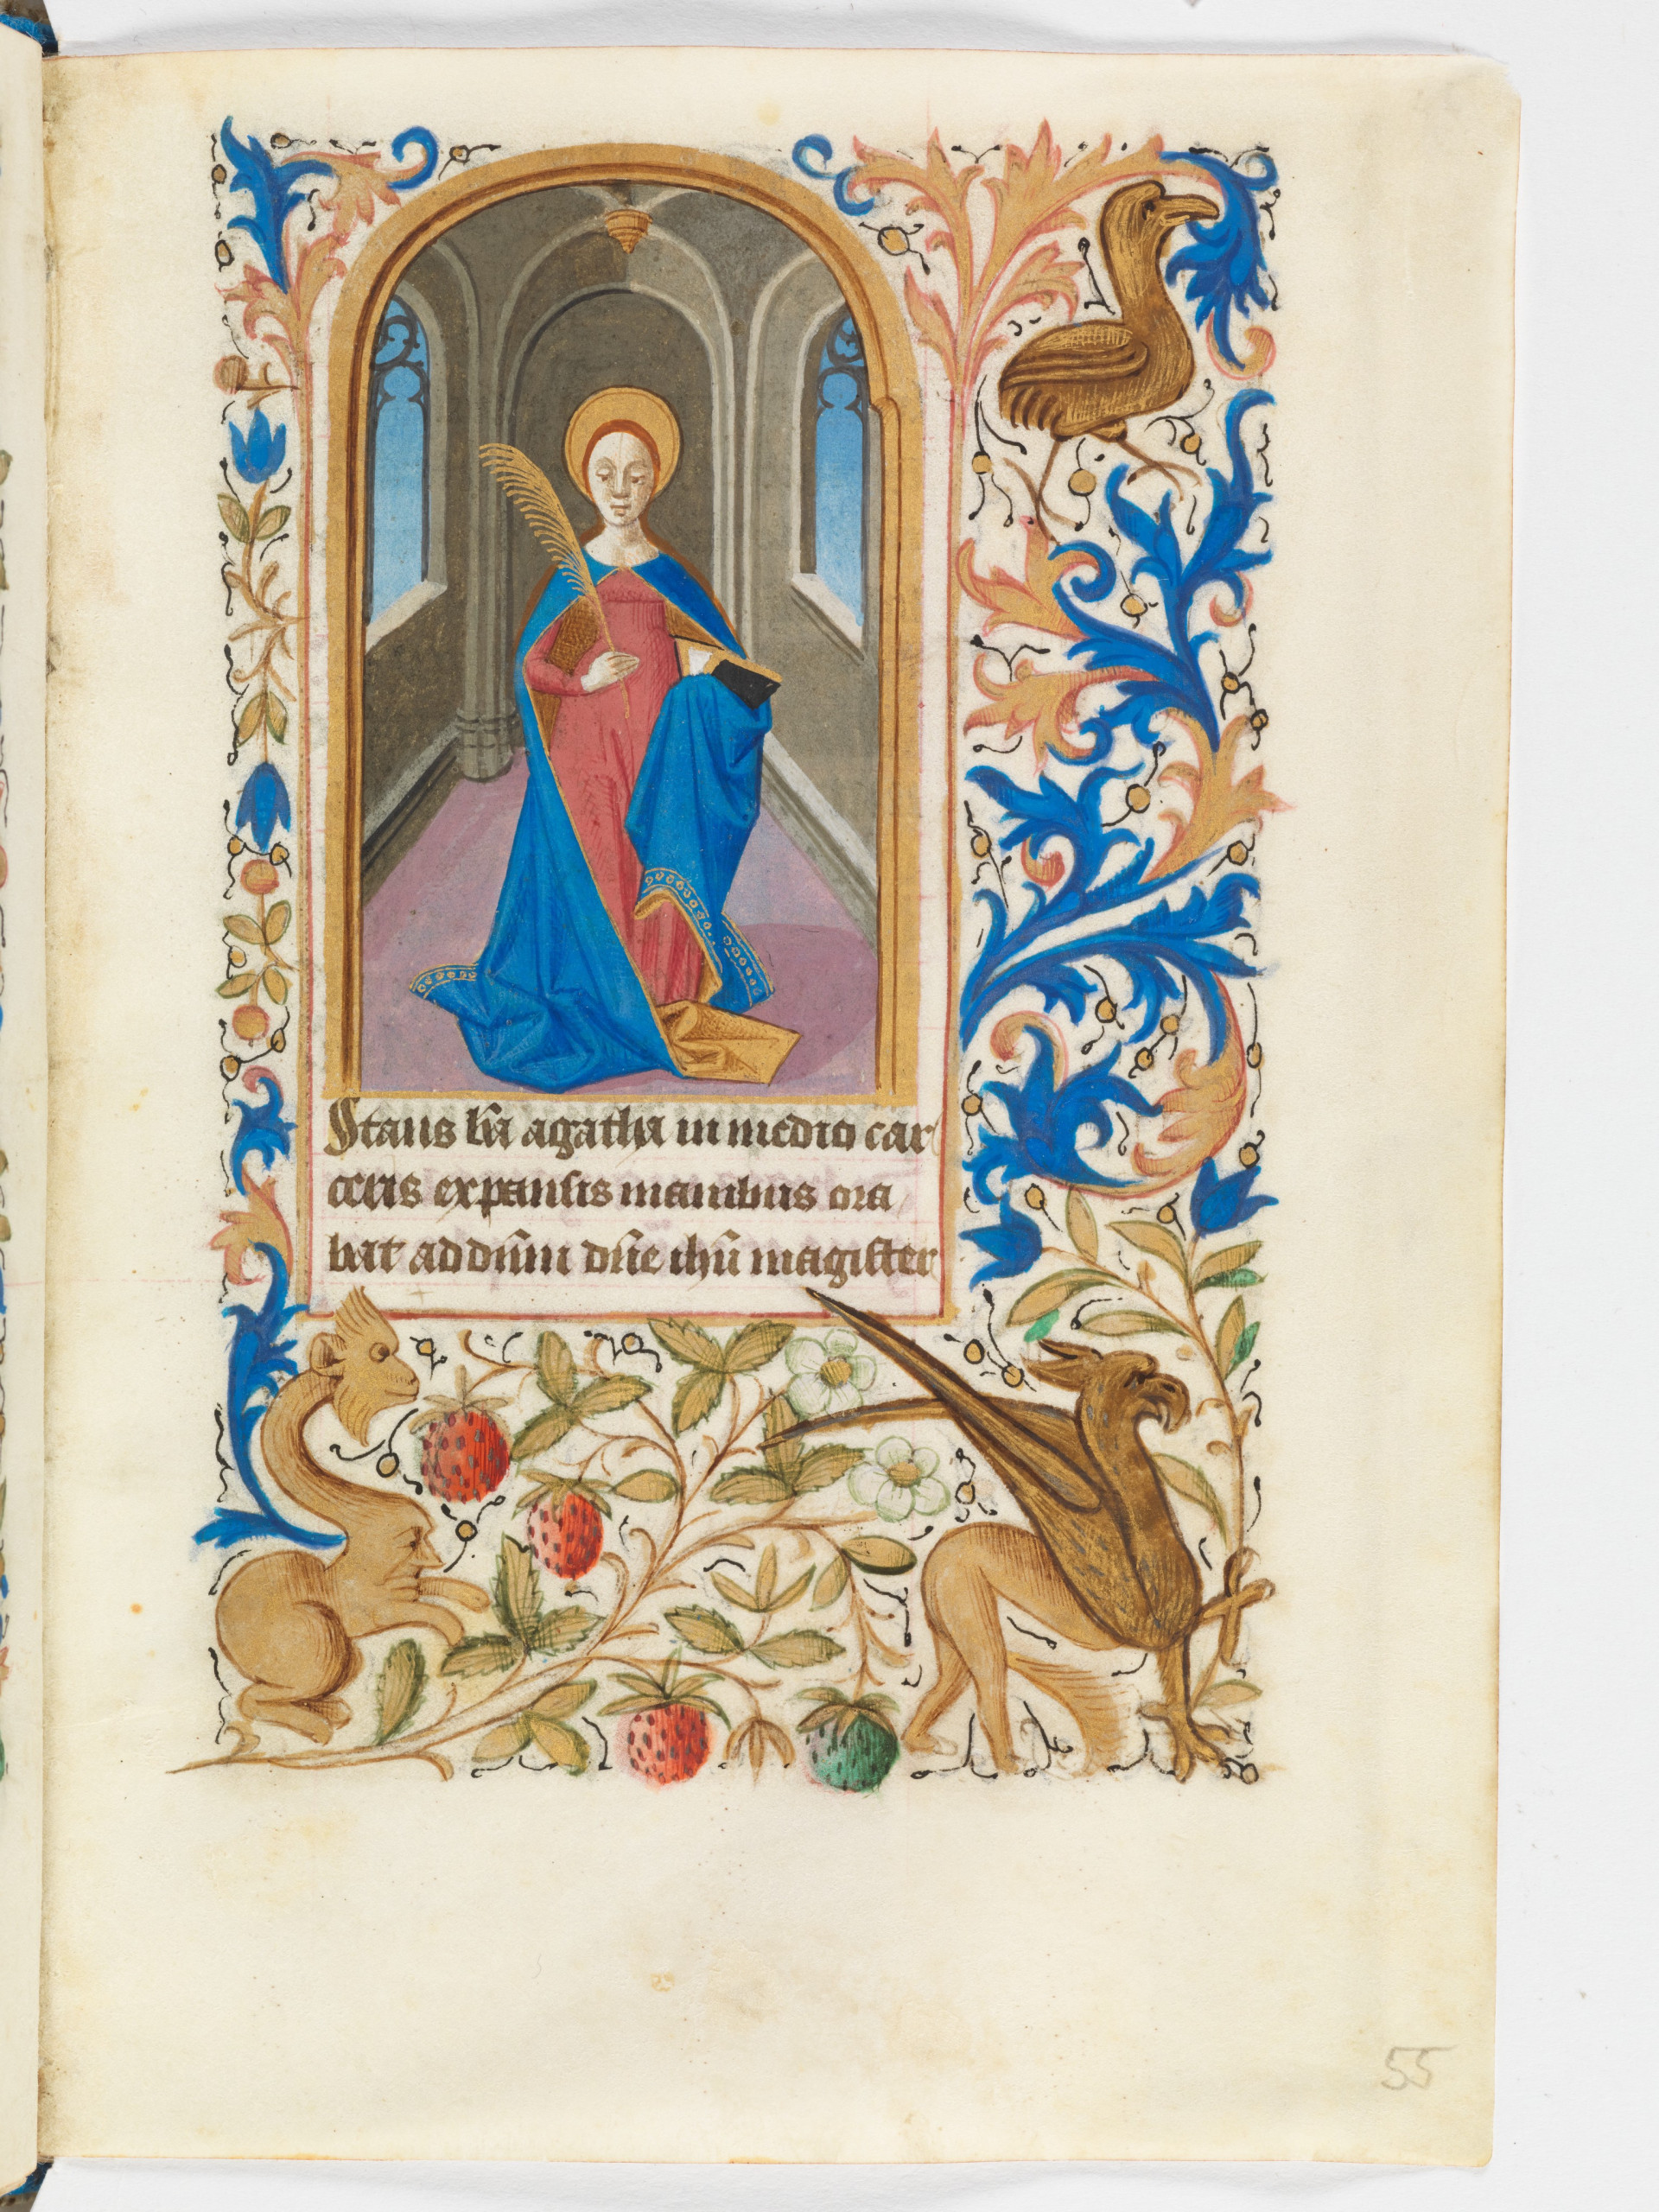 Stans bã agatha in medio car
ceris expansis manibus ora
bat ad dñm dñe ihũ magister
55